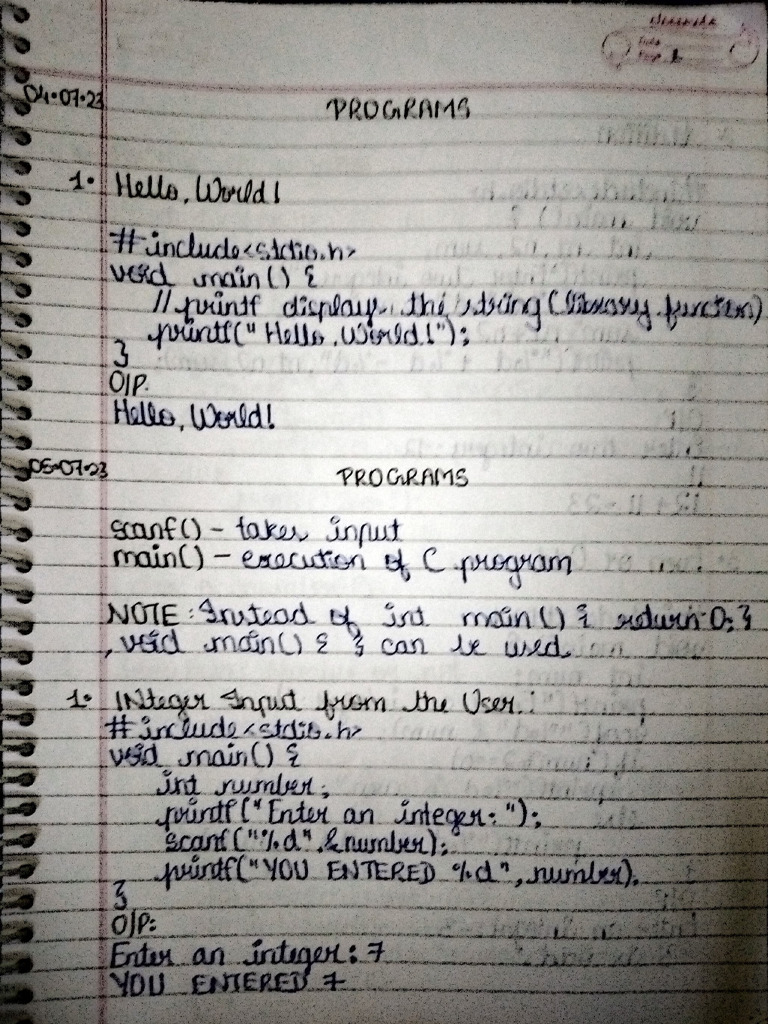 Date
Page 1
04-07-23
PROGRAMS
1. Hello, World!
#include<stdio.h>
void main() {
// printf displays the string (library function)
printf("Hello, World!");
}
O/P:
Hello, World!
05-07-23
PROGRAMS
scanf() - takes input
main() - execution of C program
NOTE: Instead of int main() { return 0; }
, void main() { } can be used.
1. INteger Input from the User:
#include<stdio.h>
void main() {
int number;
printf("Enter an integer: ");
scanf("%d", &number);
printf("YOU ENTERED %d", number);
}
O/P:
Enter an integer: 7
YOU ENTERED 7